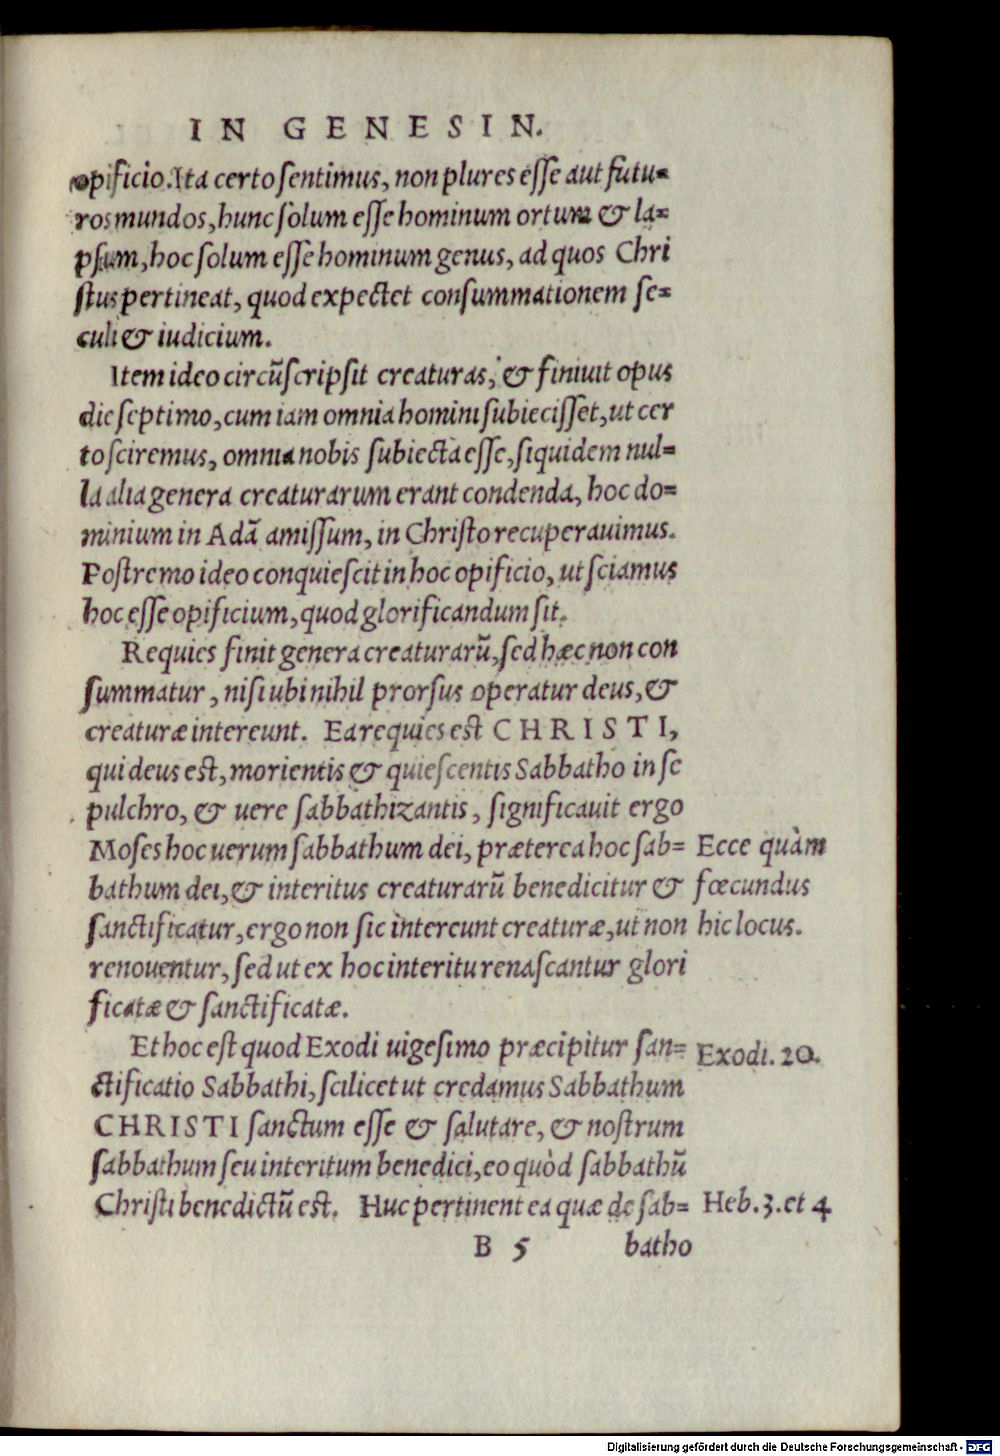 IN GENESIN.
opificio. Ita certo sentimus, non plures esse aut futu-
ros mundos, hunc solum esse hominum ortum & la-
psum, hoc solum esse hominum genus, ad quos Chri
stus pertineat, quod expectet consummationem se-
culi & iudicium.
Item ideo circũscripsit creaturas, & finiuit opus
die septimo, cum iam omnia homini subiecisset, ut cer
to sciremus, omnia nobis subiecta esse, siquidem nul-
la alia genera creaturarum erant condenda, hoc do-
minium in Adã amissum, in Christo recuperauimus.
Postremo ideo conquiescit in hoc opificio, ut sciamus
hoc esse opificium, quod glorificandum sit.
Requies finit genera creaturarũ, sed hæc non con
summatur, nisi ubi nihil prorsus operatur deus, &
creaturæ intereunt. Ea requies est CHRISTI,
qui deus est, morientis & quiescentis Sabbatho in se
pulchro, & uere sabbathizantis, significauit ergo
Moses hoc uerum sabbathum dei, præterea hoc sab-
bathum dei, & interitus creaturarũ benedicitur &
sanctificatur, ergo non sic intereunt creaturæ, ut non
renouentur, sed ut ex hoc interitu renascantur glori
ficatæ & sanctificatæ.
Ecce quàm
fœcundus
hic locus.
Et hoc est quod Exodi uigesimo præcipitur san-
ctificatio Sabbathi, scilicet ut credamus Sabbathum
CHRISTI sanctum esse & salutare, & nostrum
sabbathum seu interitum benedici, eo quòd sabbathũ
Christi benedictũ est. Huc pertinent ea quæ de sab-
Exodi. 20.
Heb. 3. et 4
B 5
batho
Digitalisierung gefördert durch die Deutsche Forschungsgemeinschaft - DFG